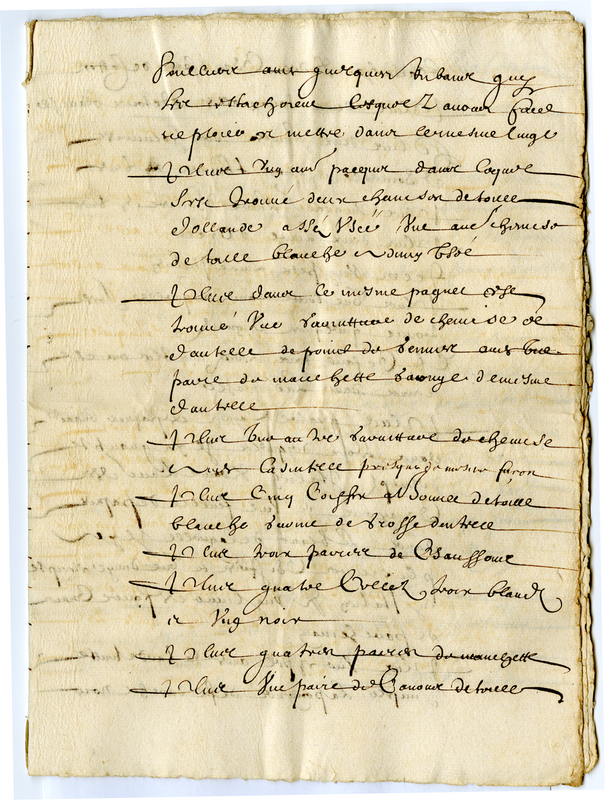 avec quelques rubans qui
sy attachoient lesquelz avons faict
reploier et mettre dans le mesme linge
Plus ung aultre pacquet dans lequel
s'est trouvé deux chemises de toille
d'ollande assé usée, une aultre chemise
de toille blanche demy usé
Plus dans le mesme paquet s'est
trouvé une garniture de chemise de
dantelle de point de avec une
paire de manchette garnye de mesme
dantelle
Plus une autre garniture de chemise
avec la dantelle presque de mesme façon
Plus cinq coiffe et bonnet de toille
blanche garnie de grosse dentelle
Plus trois paires de chaussons
Plus quatre trois blancz
et ung noir
Plus quatres paires de manchette
Plus une paire de canons de toille